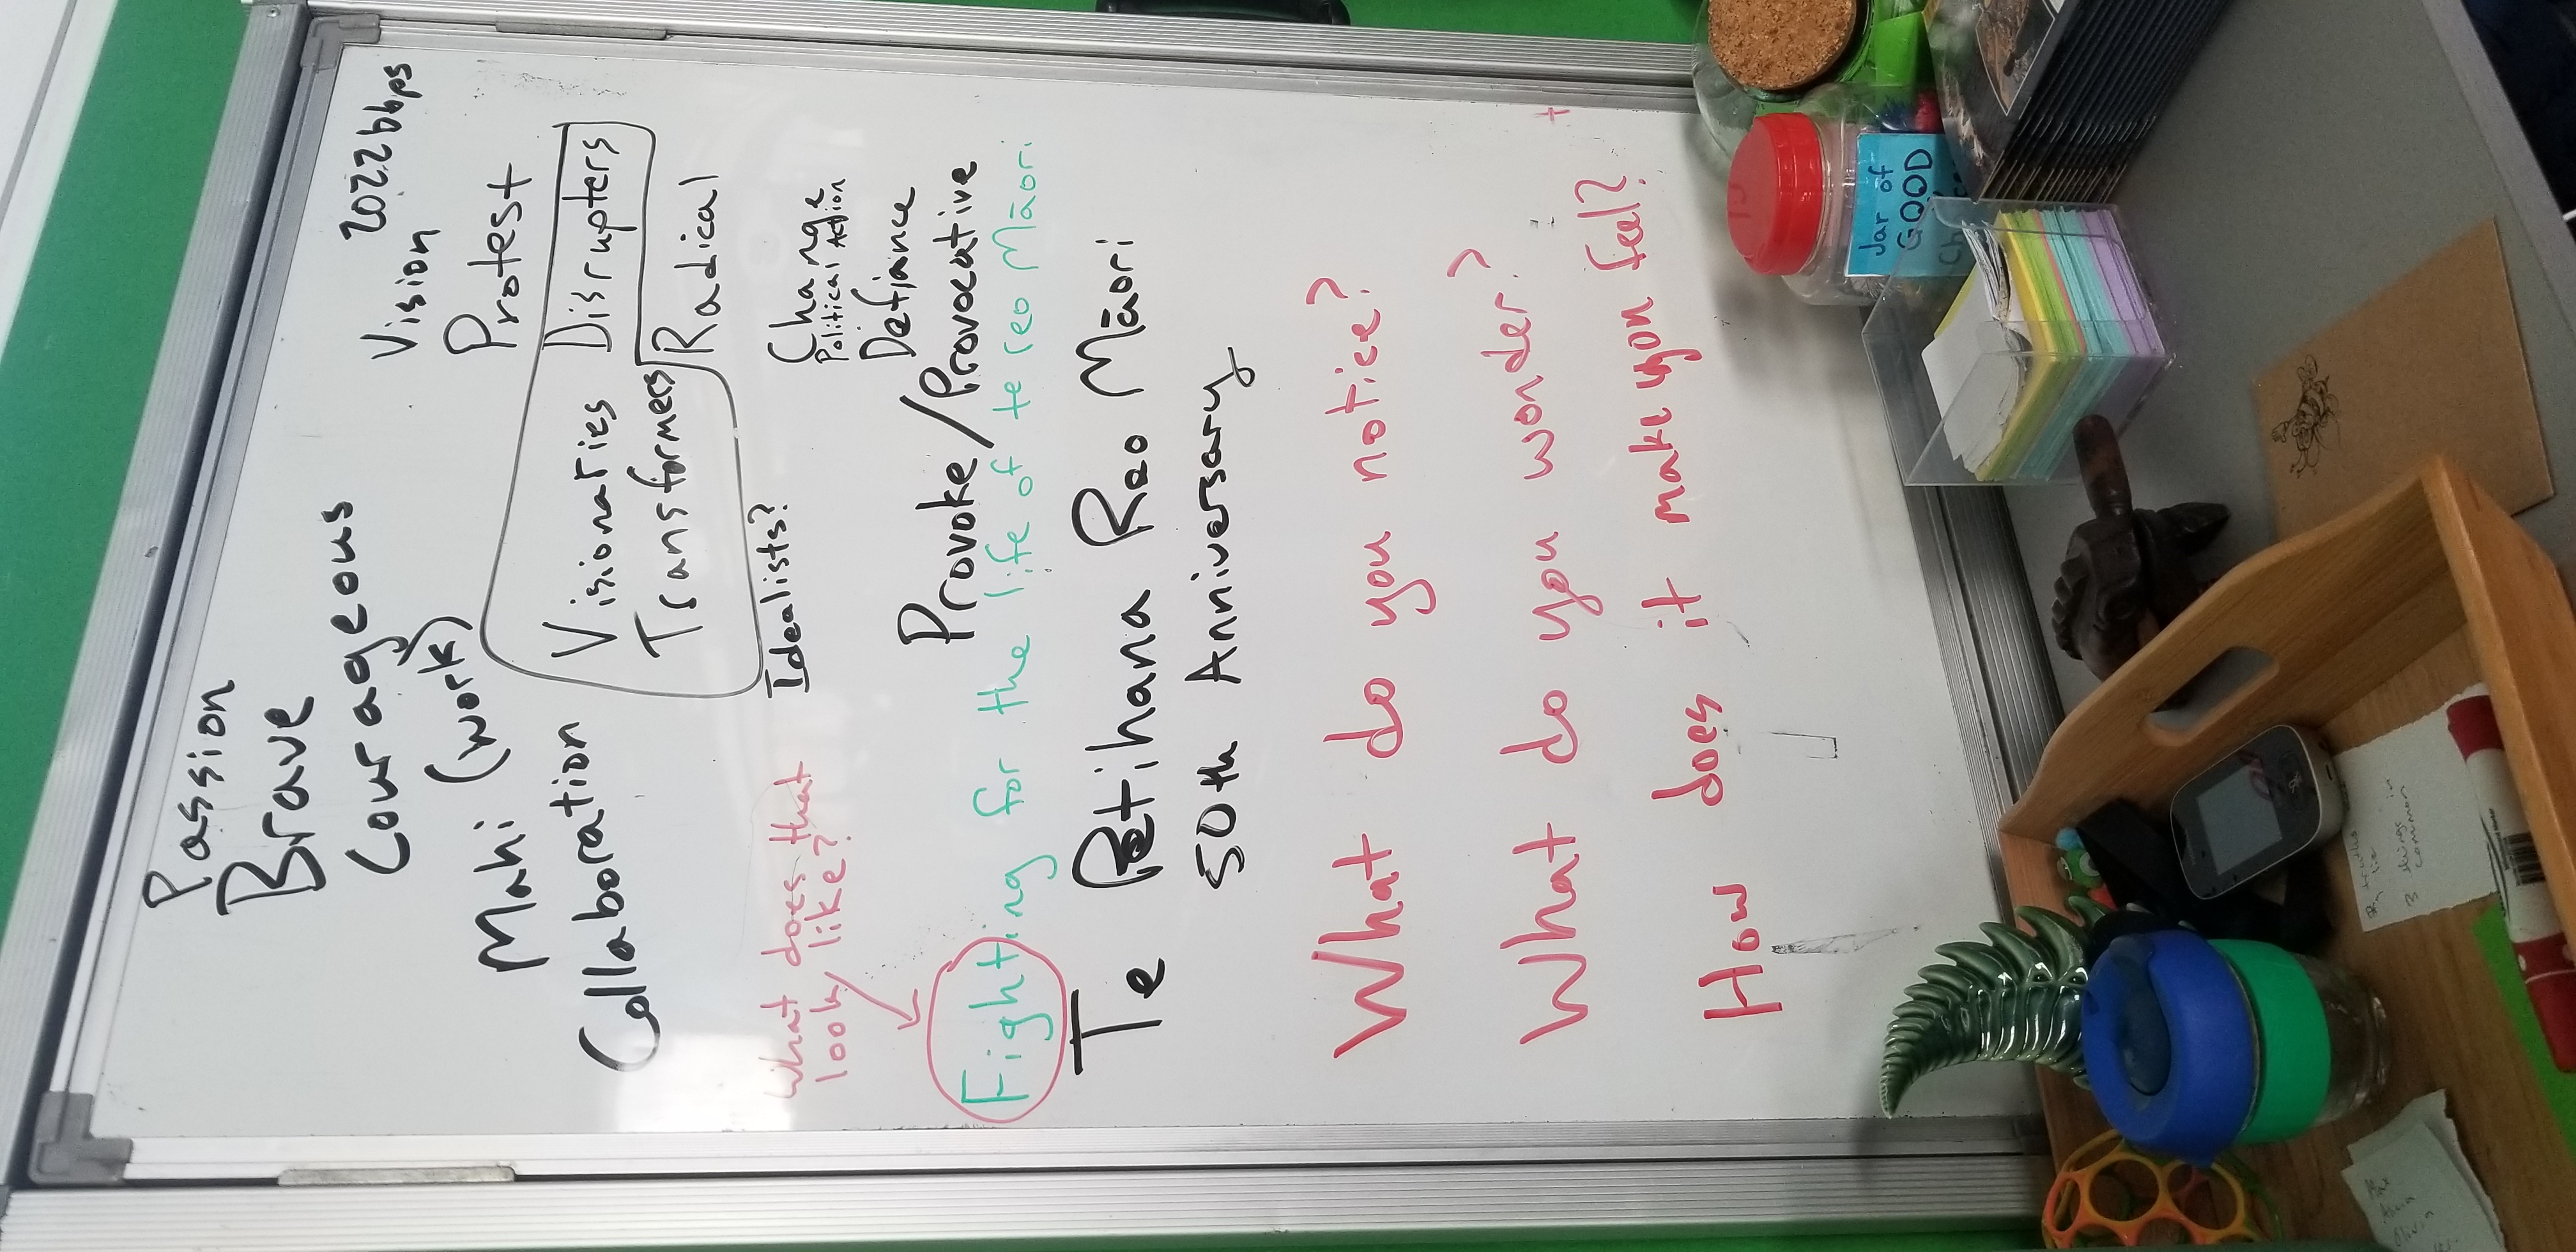 2022bbps
Passion
Vision
Brave
Protest
Courageous
Mahi (work)
Visionaries Disrupters
Transformers
Radical
Collaboration
Idealists?
Change
Political Action
Defiance
What does that
look like?
Provoke/Provocative
Fighting for the life of te reo Māori
Te Petihana Reo Māori
50th Anniversary
What do you notice?
What do you wonder?
How does it make you feel?
Jar of
GOOD
3 things in
common